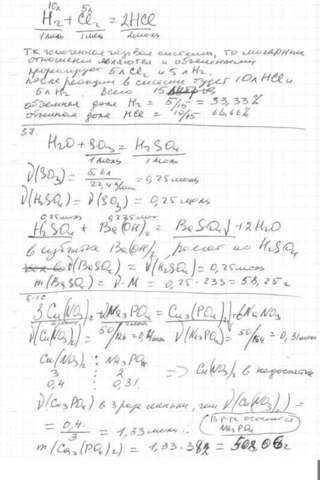 10л 5л
H₂ + Cl₂ = 2HCl
1 моль 1 моль 2 моль
Т.к. газовая система, то молярные
отношения являются и объёмными
прореагирует 5л Cl₂ и 5л H₂.
После реакции в смеси будет 10л HCl и
5л H₂ Всего 15
объемная доля H₂ = 5/15 = 33,33%
объемная доля HCl = 10/15 66,66%
H₂O + SO₃ = H₂SO₄
1 моль 1 моль
ν(SO₃) = = 0,25 моль
ν(H₂SO₄) = ν(SO₃) = 0,25 моль
0,25 моль
H₂SO₄ + Ba(OH)₂ = BaSO₄↓ + 2H₂O
в избытке Ba(OH)₂, расчет по H₂SO₄
ν(BaSO₄) = ν(H₂SO₄) = 0,25 моль
m(BaSO₄) = ν·M = 0,25 · 233 = 58,25 г
3Cu(NO₃)₂ + 2Na₃PO₄ = Cu₃(PO₄)₂↓ + 6NaNO₃
ν(Cu(NO₃)₂) = ν(Na₃PO₄) = 50/164 = 0,31 моль
Cu(NO₃)₂ : Na₃PO₄
3 : 2 => Cu(NO₃)₂ в недостатке
0,4 0,31
ν(Cu₃PO₄) в 3 раза меньше, чем ν(Cu(NO₃)₂) =
= 0,4/3 = 1,33 моль
Na₃PO₄
m(Cu₃(PO₄)₂) = 1,33 ·